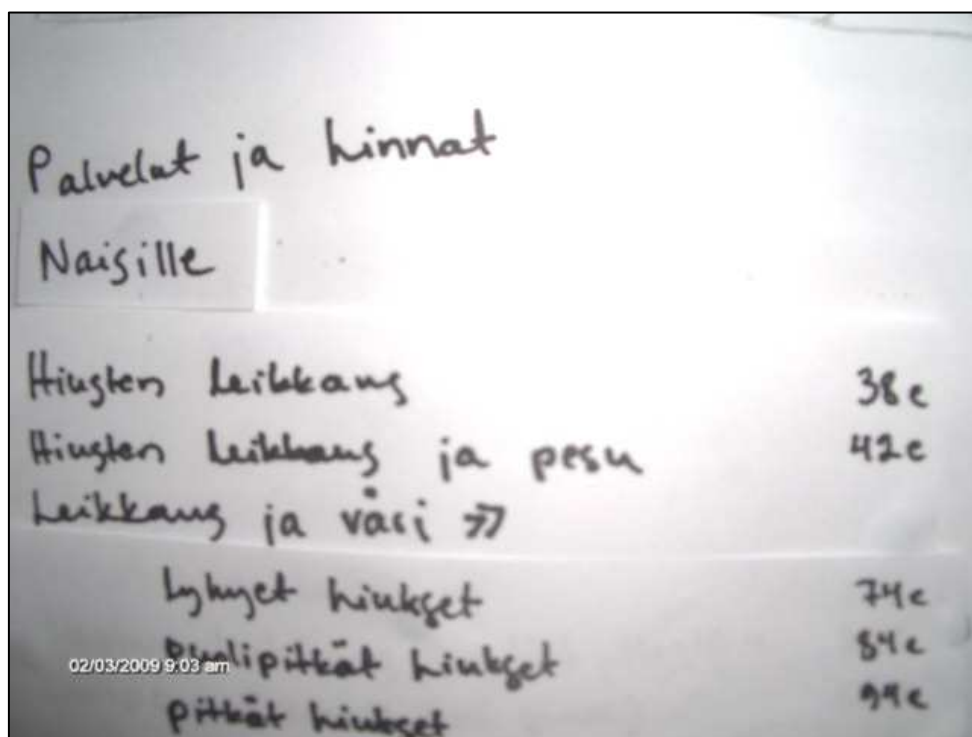 Palvelut ja hinnat
Naisille
Hiusten Leikkaus 38e
Hiusten Leikkaus ja pesu 42e
Leikkaus ja väri >>
Lyhyet hiukset 74e
Puolipitkät hiukset 84e
pitkät hiukset 94e
02/03/2009 9:03 am